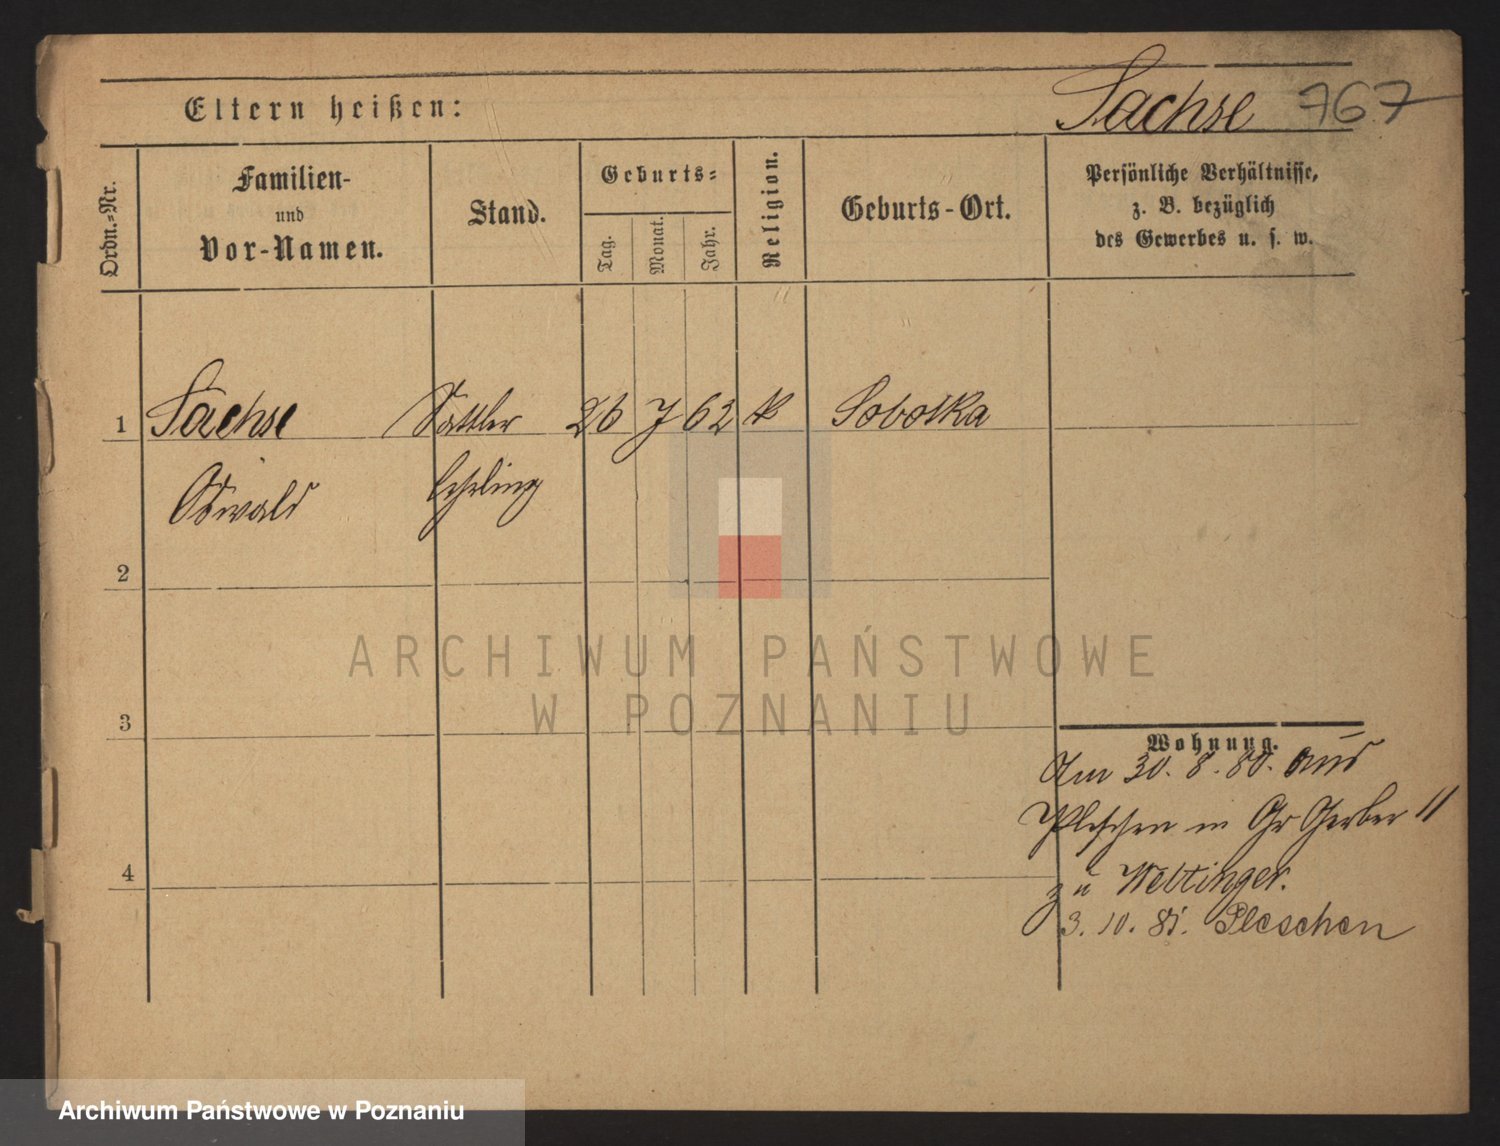 Eltern heißen:
Sachse 767
Ordn.=Nr.
Familien-
und
Vor-Namen.
Stand.
Geburts=
Tag.
Monat.
Jahr.
Religion.
Geburts-Ort.
Persönliche Verhältnisse,
z. B. bezüglich
des Gewerbes u. s. w.
1 Sachse Sattler 26 7 62 k Sobotka
Oswald Lehrling
2
3
Wohnung.
Am 30. 8. 80. aus
Pleschen in Gr Gerber 11
4
zu Weltinger.
3. 10. 81. Pleschen
ARCHIWUM PAŃSTWOWE
W POZNANIU
Archiwum Państwowe w Poznaniu